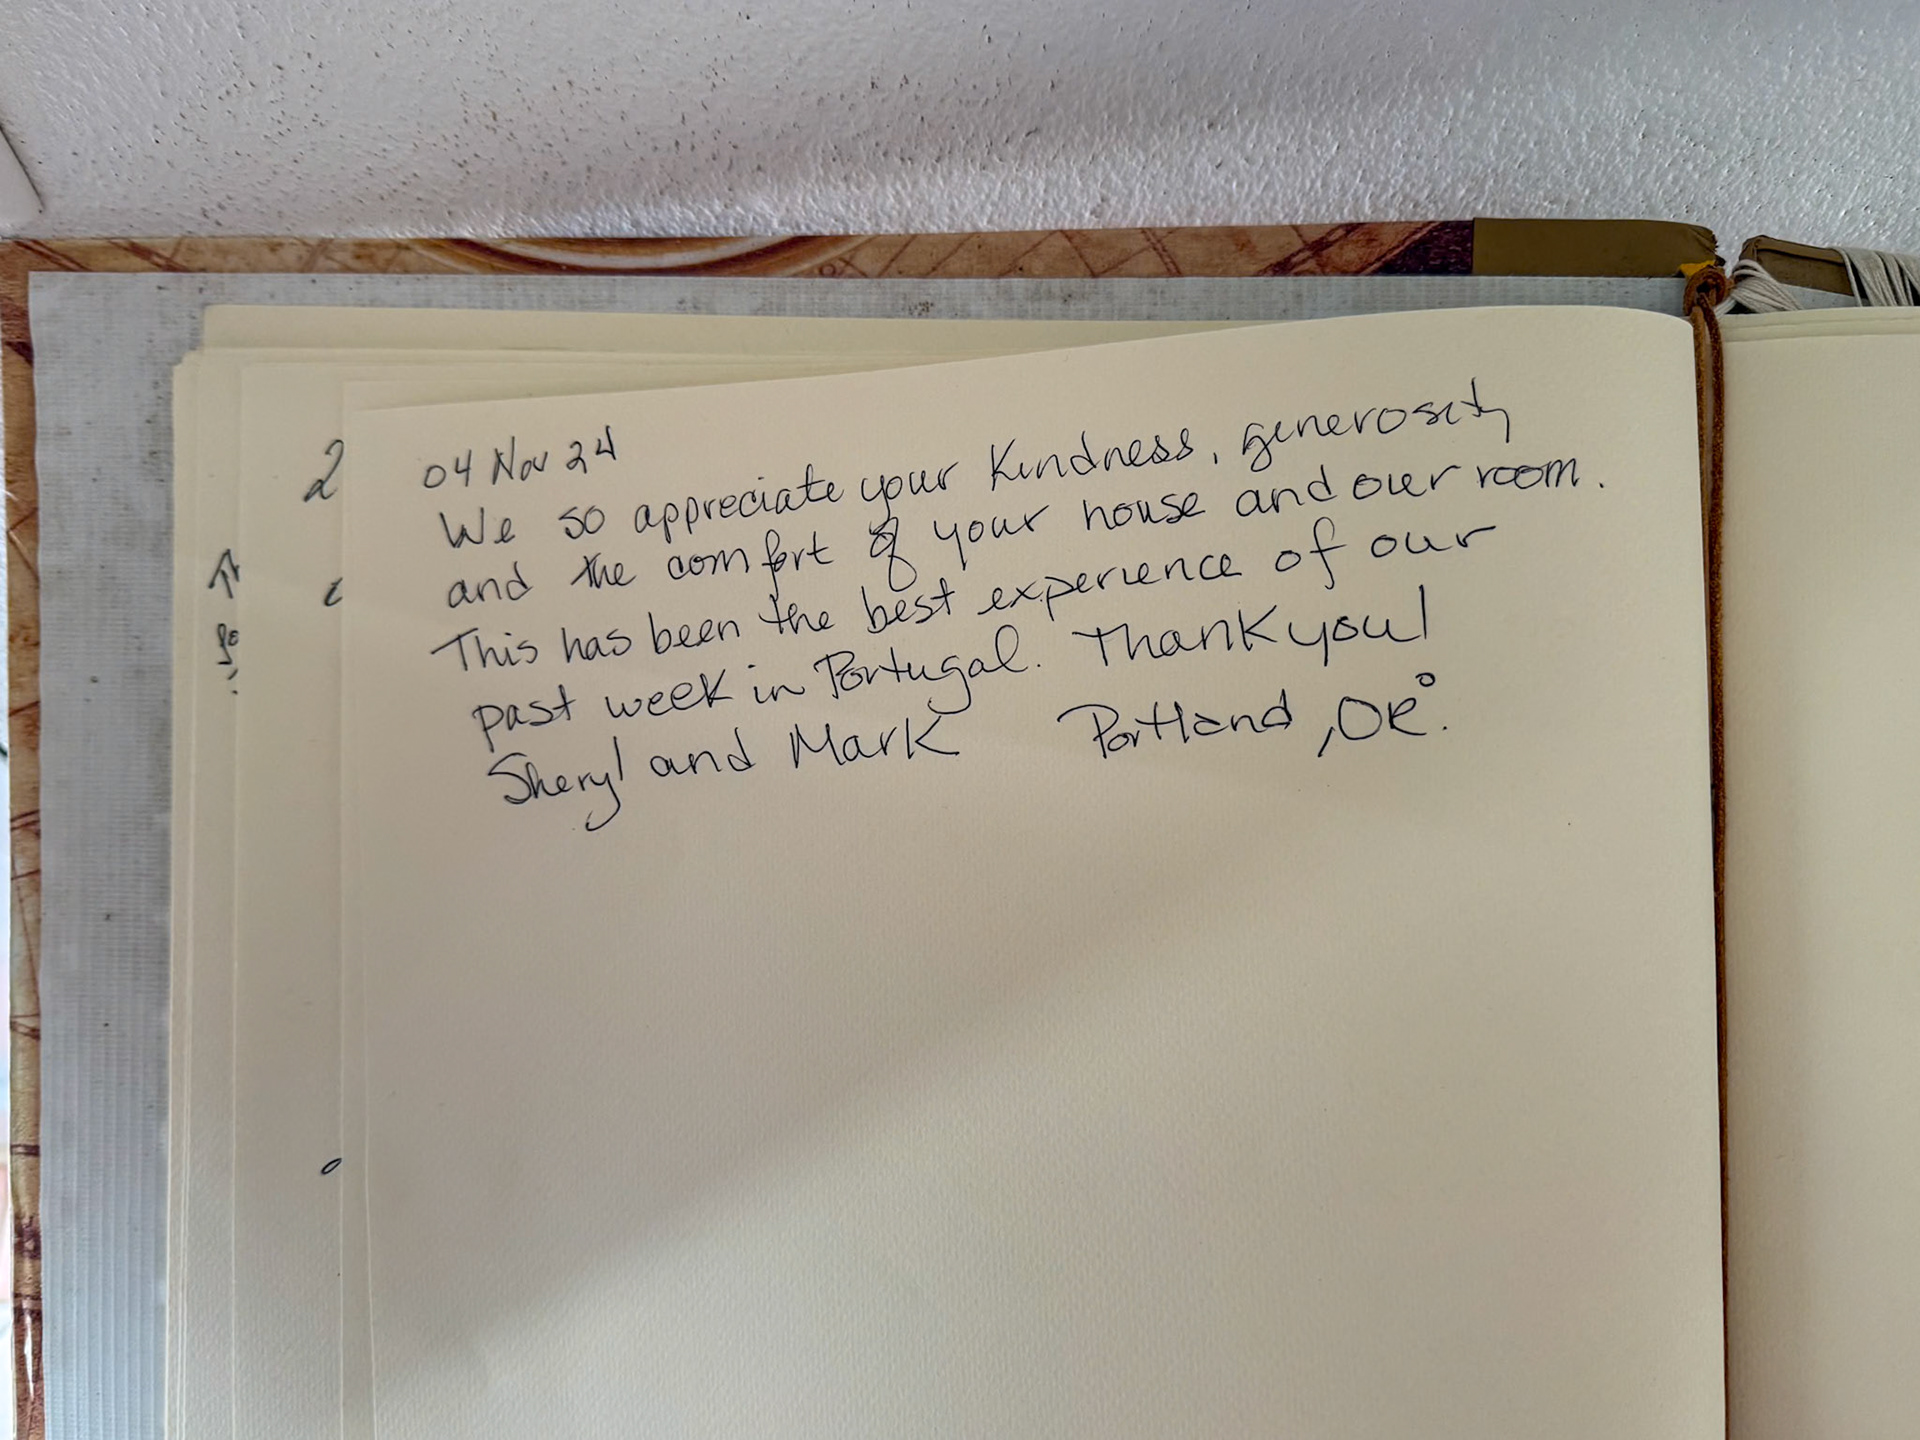 04 Nov 24
We so appreciate your Kindness, generosity
and the comfort of your house and our room.
This has been the best experience of our
past week in Portugal. Thank you!
Sheryl and Mark Portland, OR.